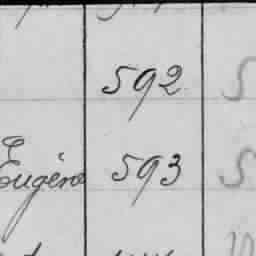 592 S
Eugène 593 S